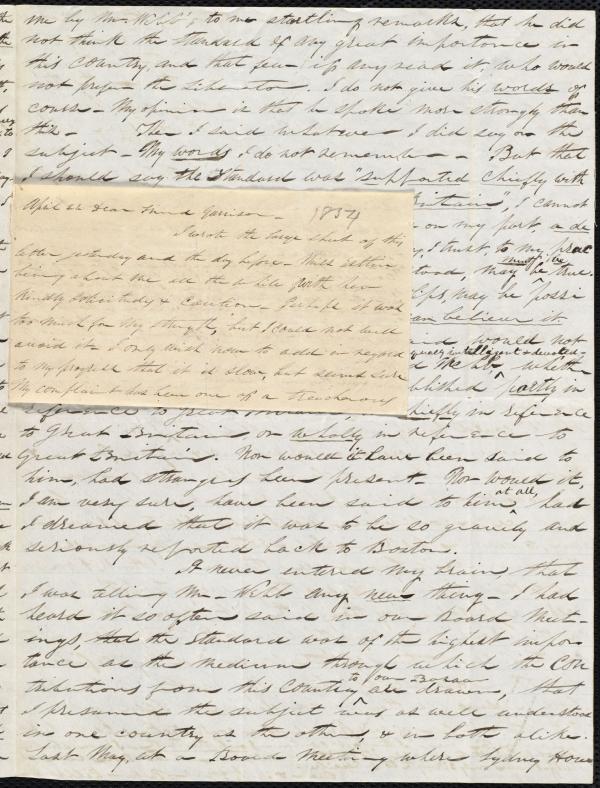 me by Mr. Webb's to me startling remarks, that he did
not think the Standard of any great importance in
this country, and that few if any read it, who would
not prefer the Liberator. I do not give his words of
course - My opinion is that he spoke more strongly than
this - Then I said whatever I did say on the
subject - My words I do not remember - But that
I should say the Standard was "supported chiefly with
Britain", I cannot
on my part, a de
, I trust, to my prac
, may be true.
, may be possi
can believe it
would not
intelligent & devoted
Webb, whether
published partly in
reference to Great Britain, chiefly in reference
to Great Britain, or wholly in reference to
Great Britain. Nor would it have been said to
him, had strangers been present. Nor would it,
I am very sure, have been said to him at all, had
I dreamed that it was to be so gravely and
seriously reported back to Boston.
I never entered my brain, that
I was telling Mr. Webb any new thing - I had
heard it so often said in our Board Meet-
ings, that the Standard was of the highest impor-
tance as the medium through which the con
tributions from this Country to our Bazaar are drawn, that
I presumed the subject was as well understood
in one country as the other, & in both alike.
Last May, at a Board Meeting where Sydney Howe
April 22 Dear Friend Garrison - 1854
I wrote the large sheet of this
letter yesterday and the day before - Miss
being about me all the while with her
kindly solicitude & caution. Perhaps it was
too much for my strength, but I could not well
avoid it - I only wish now to add in regard
to my progress that it is slow, but seems sure
My complaint has been one of a treacherous